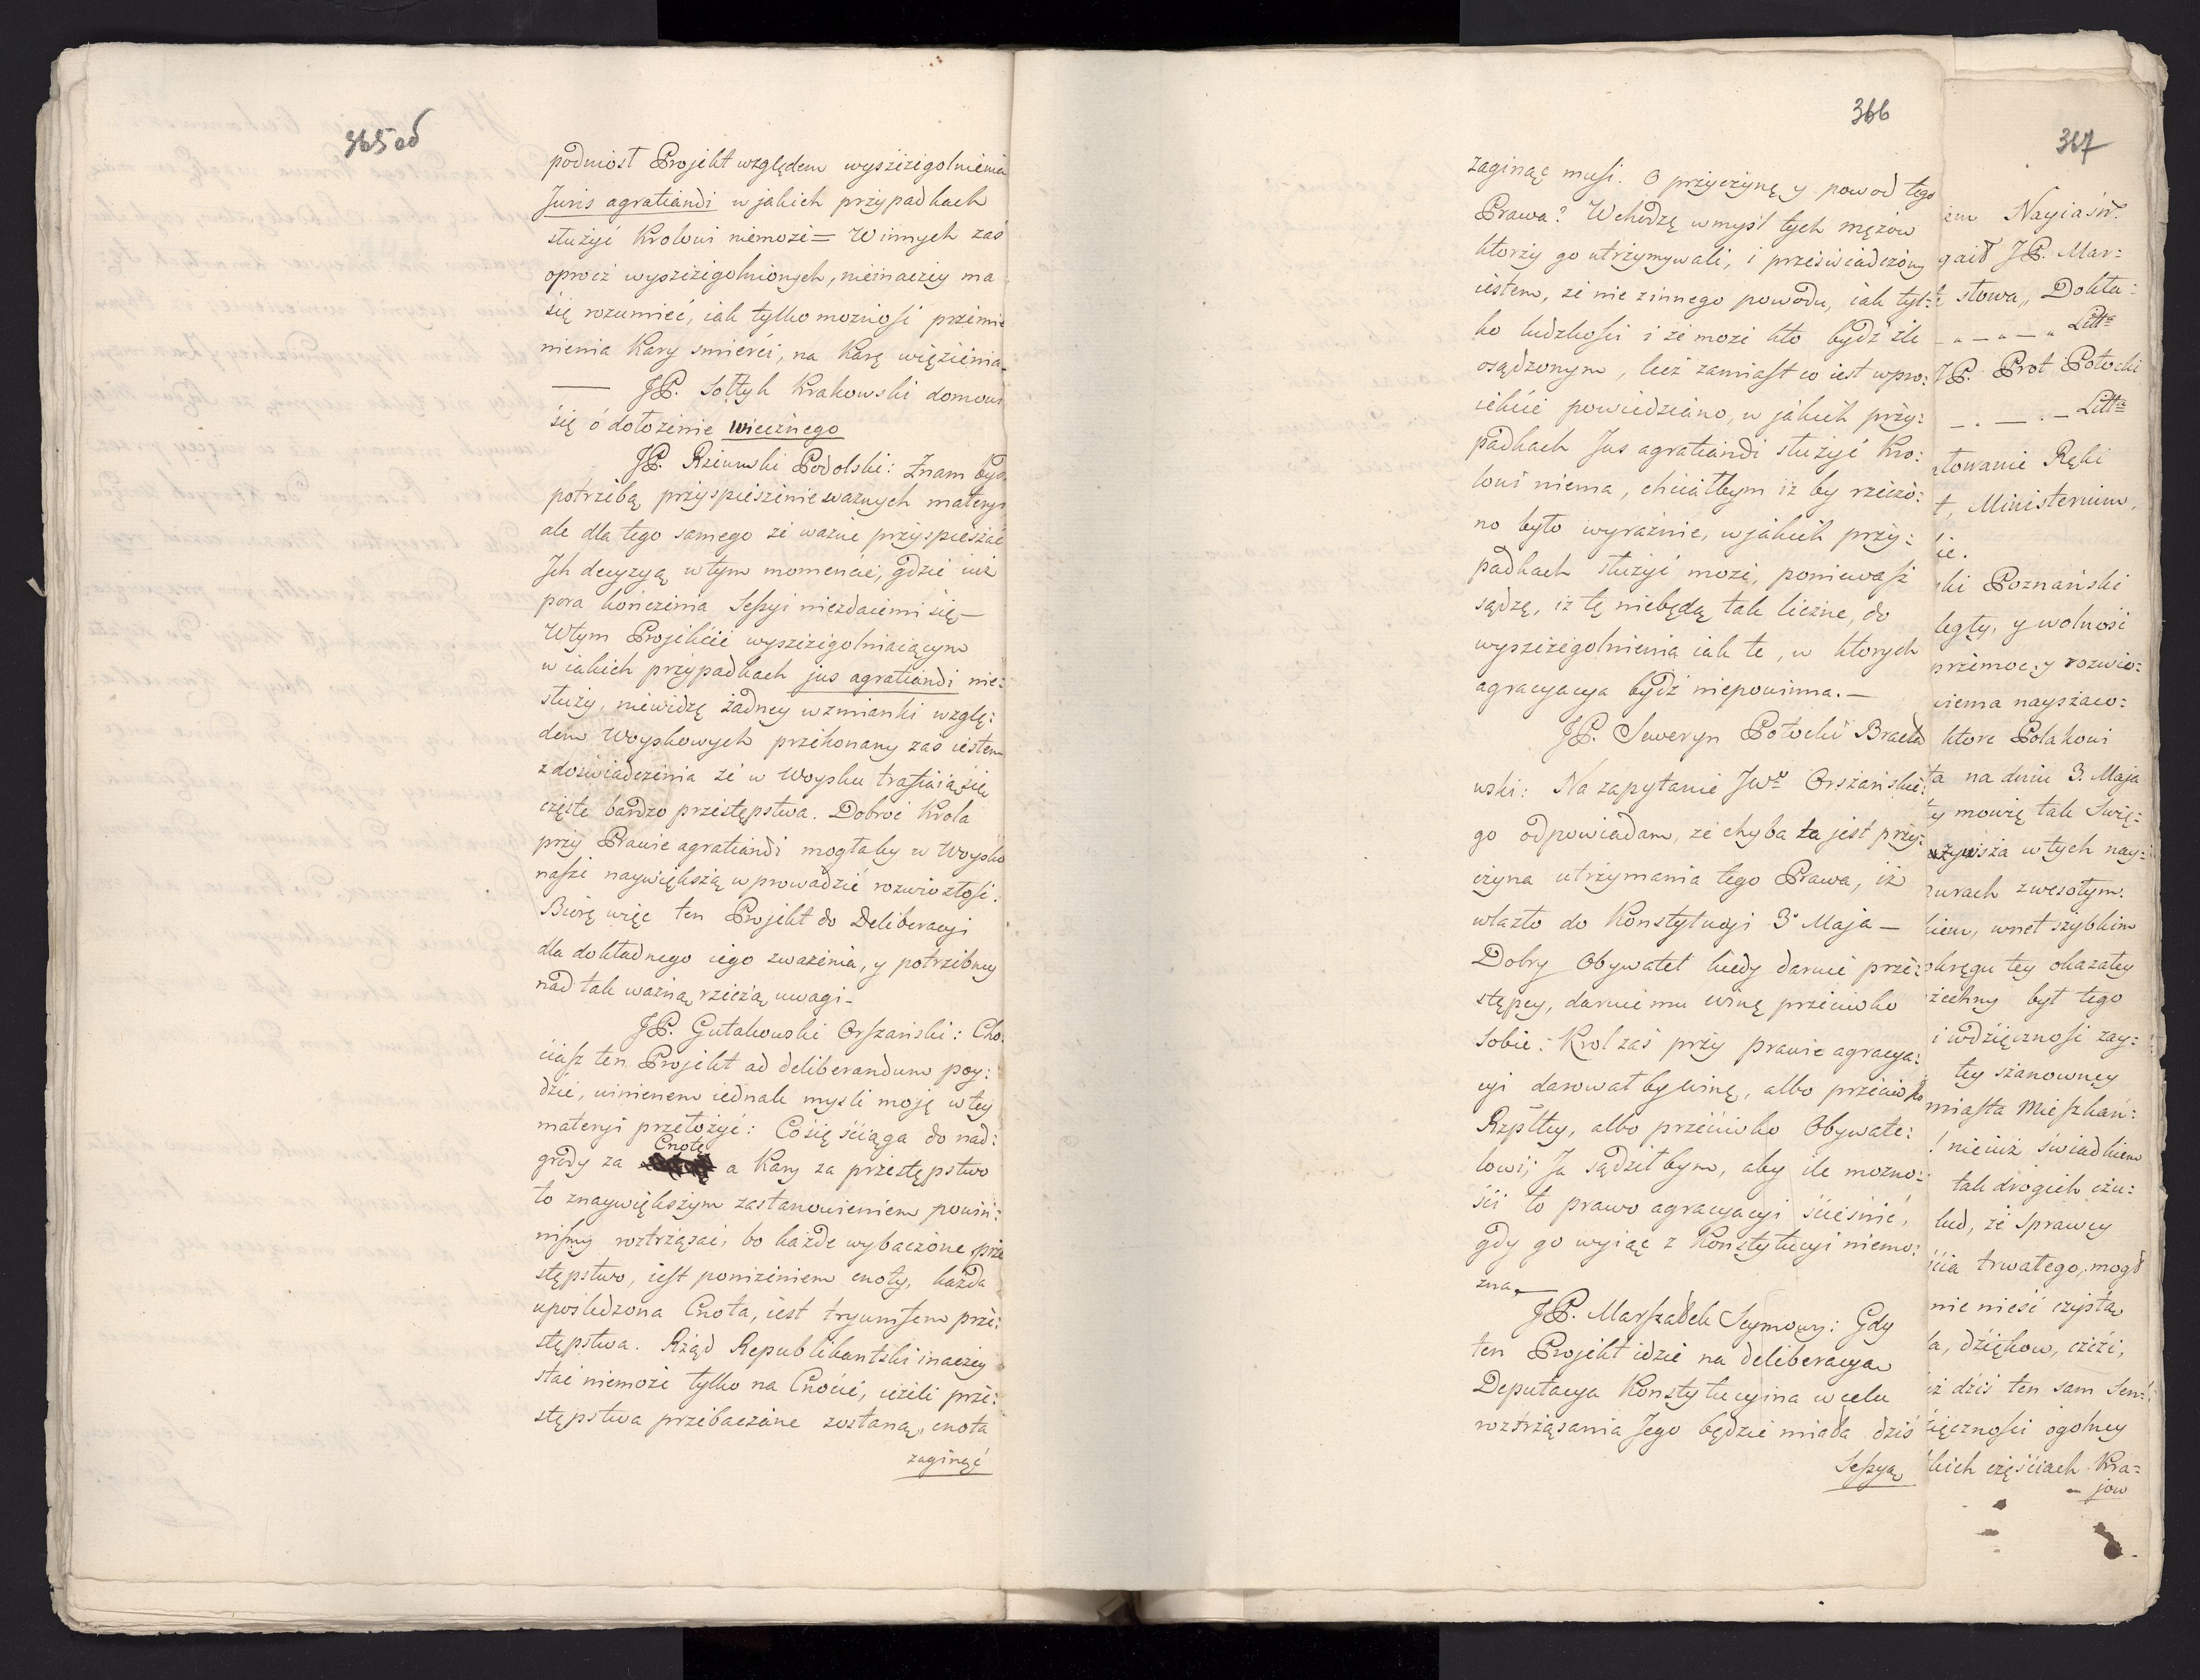 365 об
podniosł Projekt względem wyszczegolnienia
Juris agratiandi w jakich przypadkach
służyć Krolowi niemoże= W innych zaś
oprocz wyszczegolnionych, nieinaczey ma
się rozumieć, iak tylko możność przemie
nienia Kary smierci, na Karę więzienia.
— JP. Sołtyk Krakowski domowi
się ó dołożenie wiecznego
JP. Rzewuski Podolski: Znam bydź
potrzebą przyspieszenie ważnych matery
ale dla tego samego że ważne przyspieszać
Jch decyzyą w tym momencie, gdzie iuż
pora kończenia Seſsyi niezdaiemi się—
W tym Projekcie wyszczegolniaiącym
w iakich przypadkach jus agratiandi nie=
służy, niewidzę żadney wzmianki wzglę:
dem Woyskowych przekonany zaś iestem
z doświadczenia że w Woysku trafiaią się
częste bardzo przestępstwa. Dobroć Krola
przy Prawie agratiandi mogłaby w Woysko
naſze naywiększą wprowadzić rozwiozłość.
Biorę więc ten Projekt do Deliberacyi
dla dokładnego iego zważenia, y potrzebney
nad tak ważną rzeczą uwagi-
JP. Gutakowski Orſzanski: Cho
ciaſz ten Projekt ad deliberandum poy:
dzie, winienem iednak mysli moję w tey
materyi przełożyć: Co się ściąga do nad:
Cnotę
grody za a Kary za przestępstwo
to znaywiększym zastanowieniem powin:
niſmy roztrząsać, bo każde wybaczone prze
stępstwo, ieſt poniżeniem cnoty, każda
upośledzona Cnota, iest tryumfem prze:
stępstwa. Rząd Republikantski inaczey
stać niemoże tylko na Cnocie, ieżeli prze:
stępstwa przebaczone zostaną, cnota
zaginąć
366
zaginąć musi. O przyczynę y powod tego
Prawa? Wchodzę w myśl tych mężow
ktorzy go utrzymywali, i przeświadczony
iestem, że nie z innego powodu, iak tyl:
ko ludzkości i że może kto bydź źle
osądzonym, lecz zamiaſt co iest w pro:
iekcie powiedziano, w jakich przy:
padkach Jus agratiandi służyć Kro:
lowi niema, chciałbym iż by rzeczo:
no było wyraźnie, w jakich przy:
padkach służyć może, ponieważ
sądzę, iż tę niebędą tak liczne, do
wyszczegolnienia iak te, w ktorych
agracyacya bydź niepowinna.—
JP. Seweryn Potocki Bracła
wski: Na zapytanie JWo Orszańskie:
go odpowiadam, że chyba ta jest przy:
czyna utrzymania tego Prawa, iż
wlazło do Konstytucyi 3° Maja—
Dobry Obywatel kiedy daruie prze:
stępcy, daruie mu winę przeciwko
sobie: Krol zaś przy prawie agracya:
cyi darowałby winę, albo przeciwko
Rzpltey, albo przeciwko Obywate:
lowi; Ja sądziłbym, aby ile możno:
ści to prawo agracyacyi ściesnić,
gdy go wyiąć z Konstytucyi niemo:
żna.—
JP. Marſzałek Seymowy: Gdy
ten Projekt idzie na deliberacya
Deputacya Konstytucyina w celu
roztrząsania Jego będzie miała dziś
Seſsyą
367
iem Nayiaśń.
gaił JP. Mar=
słowa,, Dokta:
Litta
JP. Prot Potocki
Litta
towanie Ręki
t, Ministerium,
ie.
ki Poznański
legły, y wolność
przemoc, y rozwio:
iema nayszaco:
ktore Polakowi
ta na dniu 3. Maja
y mowię tak Swię:
wtych nay:
urach zwesołym.
kiem, wnet szybkim
okręgu tey okazałey
zechny był tego
i wdzięczności zay:
tey szanowney
miaſta Mieſzkań:
! nieiuż świadkiem
tak drogich czu:
lud, że Sprawcy
ścia trwałego, mogł
nie nieść czystą
a, dzięków, cżći,
iż dziś ten sam Sen:
ięczności ogolney
kich częściach Kra=
jow